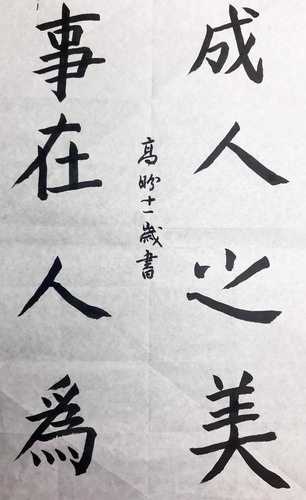 成人之美
事在人為
高盼十一歲書